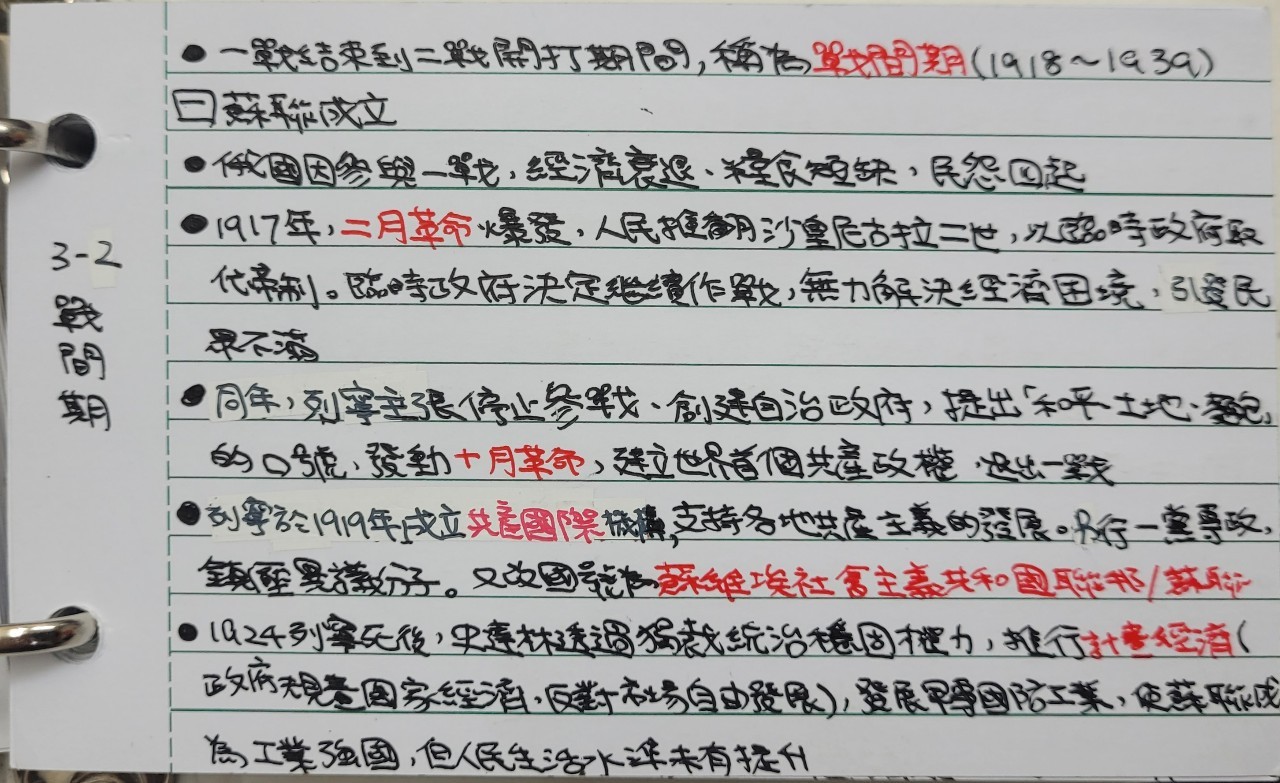 3-2
戰
間
期
●一戰結束到二戰開打期間,稱為戰間期(1918~1939)
曰蘇聯成立
●俄國因參與一戰,經濟衰退、糧食短缺,民怨四起
●1917年,二月革命爆發,人民推翻沙皇尼古拉二世,以臨時政府取
代帝制。臨時政府決定繼續作戰,無力解決經濟困境,引發民
眾不滿
●同年,列寧主張停止參戰、創建自治政府,提出「和平、土地、麵包」
的口號,發動十月革命,建立世界首個共產政權,退出一戰
●列寧於1919年成立共產國際機構,支持各地共產主義的發展。另行一黨專政,
鎮壓異議分子。又改國號為蘇維埃社會主義共和國聯邦/蘇聯
●1924列寧死後,史達林透過獨裁統治穩固權力,推行計畫經濟(
政府規畫國家經濟,反對市場自由發展),發展軍事國防工業,使蘇聯成
為工業強國,但人民生活水準未有提升